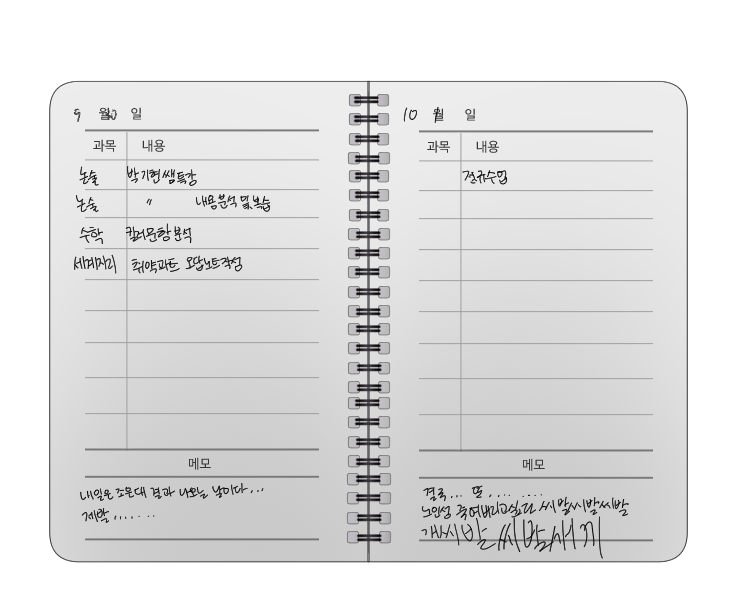 9 월 30 일
과목 내용
논술 박기현쌤특강
논술 〃 내용분석 및 복습
수학 킬러문항 분석
세계지리 취약파트 오답노트작성
메모
내일은 조온대 결과 나오는 날이다...
제발......
10 월 1 일
과목 내용
정규수업
메모
결국... 또.... ....
노인성 죽여버리고싶다 씨발씨발씨발
개씨발 씨발새끼